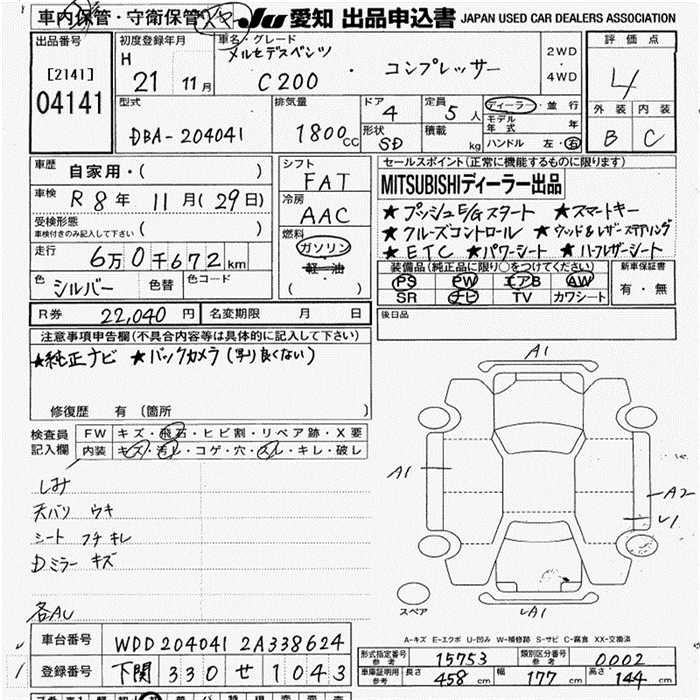 車内保管・守衛保管 JU 愛知 出品申込書 JAPAN USED CAR DEALERS ASSOCIATION
出品番号 [2141] 04141
初度登録年月 H 21 11月
車名・グレード メルセデスベンツ C200 ・ コンプレッサー
2WD ・ 4WD
評価点 4
外装 内装
B C
型式 DBA-204041
排気量 1800cc
ドア 4
形状 SD
定員 5人
積載 kg
ディーラー・並行
モデル年式 年
ハンドル 左・右
車歴 自家用・( )
車検 R8年 11月(29日)
受検形態 車検付きのみ記入して下さい ( )
走行 6万0千672km
色 シルバー 色替 色コード
シフト FAT
冷房 AAC
燃料 ガソリン
軽油
( )
セールスポイント(正常に機能するものに限ります)
MITSUBISHIディーラー出品
★プッシュE/Gスタート ★スマートキー
★クルーズコントロール ★ウッド&レザーステアリング
★ETC ★パワーシート ★ハーフレザーシート
装備品(純正品に限り○をつけてください)
PS PW エアB AW
SR ナビ TV カワシート
新車保証書
有・無
R券 22,040円 名変期限 月 日
後日品
注意事項申告欄(不具合内容等は具体的に記入して下さい)
★純正ナビ ★バックカメラ(写り良くない)
修復歴 有 〔箇所 〕
検査員記入欄
FW キズ・飛石・ヒビ割・リペア跡・X要
内装 キズ・汚レ・コゲ・穴・スレ・キレ・破レ
しみ
天バリ ウキ
シート フチ キレ
Dミラー キズ
各AU
A1
A1
A2
U1
A1
スペア
A-キズ E-エクボ U-凹み W-補修跡 S-サビ C-腐食 XX-交換済
車台番号 WDD204041 2A338624
登録番号 下関 330 せ 1043
形式指定番号 参考 15753 類別区分番号 参考 0002
車庫証明用 参考 長さ 458cm 幅 177cm 高さ 144cm